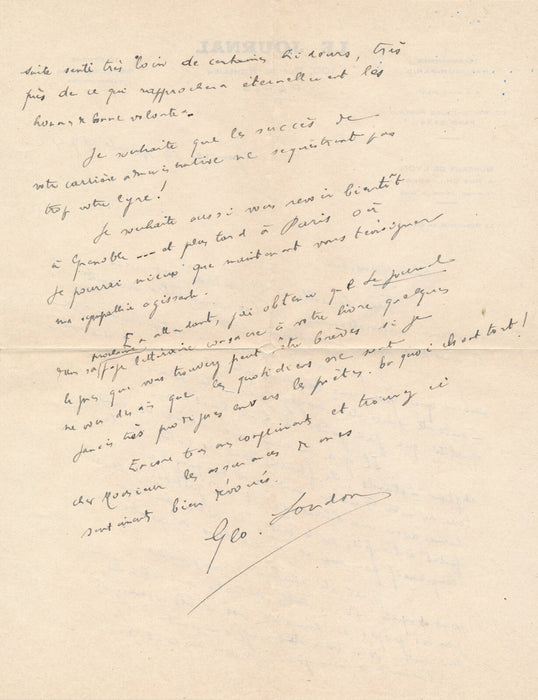 suite senti très loin de certaines hideurs, très
près de ce qui rapprochera éternellement les
hommes de bonne volonté.
Je souhaite que les succès de
votre carrière administrative ne séquestrent pas
trop votre lyre !
Je souhaite aussi vous revoir bientôt
à Grenoble --- et plus tard à Paris où
je pourrai mieux que maintenant vous témoigner
ma sympathie agissante.
En attendant, j'ai obtenu que Le Journal
prochaine
dans sa page littéraire consacre à votre livre quelques
lignes que vous trouverez peut être brèves si je
ne vous disais que les quotidiens ne sont
jamais très prodigues envers les poètes. En quoi ils ont tort !
Encore tous mes compliments et trouvez ici
cher Monsieur les assurances de mes
sentiments bien dévoués.
Geo. London
LE JOURNAL